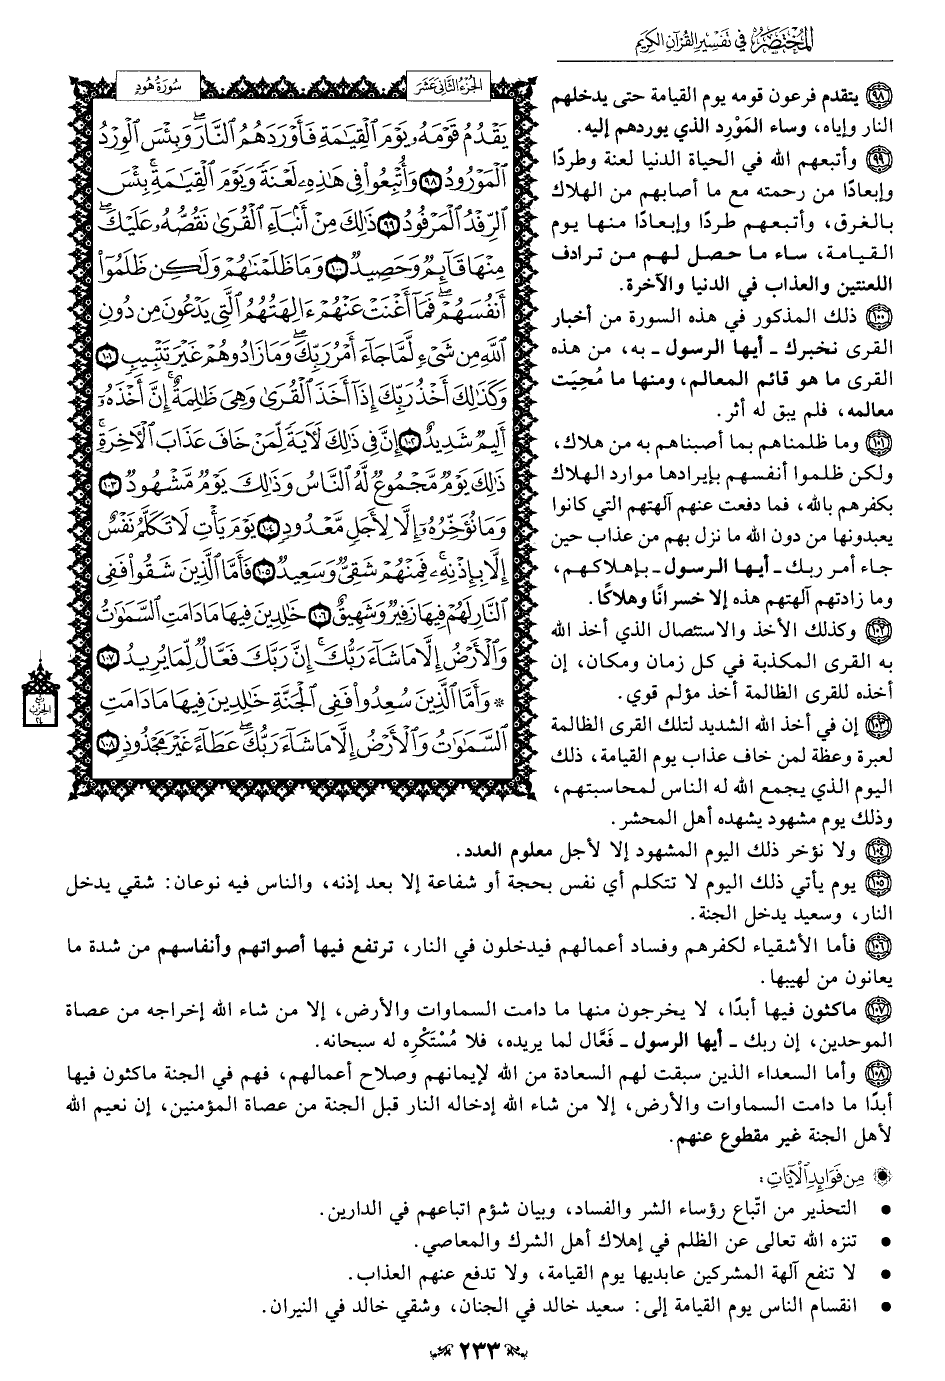 المختصر في تفسير القرآن الكريم
الجزء الثاني عشر
سورة هود
يَقْدُمُ قَوْمَهُۥ يَوْمَ ٱلْقِيَٰمَةِ فَأَوْرَدَهُمُ ٱلنَّارَۖ وَبِئْسَ ٱلْوِرْدُ
ٱلْمَوْرُودُ ٩٨ وَأُتْبِعُوا۟ فِى هَٰذِهِۦ لَعْنَةً وَيَوْمَ ٱلْقِيَٰمَةِۚ بِئْسَ
ٱلرِّفْدُ ٱلْمَرْفُودُ ٩٩ ذَٰلِكَ مِنْ أَنۢبَآءِ ٱلْقُرَىٰ نَقُصُّهُۥ عَلَيْكَۖ
مِنْهَا قَآئِمٌ وَحَصِيدٌ ١٠٠ وَمَا ظَلَمْنَٰهُمْ وَلَٰكِن ظَلَمُوٓا۟
أَنفُسَهُمْۖ فَمَآ أَغْنَتْ عَنْهُمْ ءَالِهَتُهُمُ ٱلَّتِى يَدْعُونَ مِن دُونِ
ٱللَّهِ مِن شَىْءٍ لَّمَّا جَآءَ أَمْرُ رَبِّكَۖ وَمَا زَادُوهُمْ غَيْرَ تَتْبِيبٍ ١٠١
وَكَذَٰلِكَ أَخْذُ رَبِّكَ إِذَآ أَخَذَ ٱلْقُرَىٰ وَهِىَ ظَٰلِمَةٌۚ إِنَّ أَخْذَهُۥٓ
أَلِيمٌ شَدِيدٌ ١٠٢ إِنَّ فِى ذَٰلِكَ لَءَايَةً لِّمَنْ خَافَ عَذَابَ ٱلْءَاخِرَةِۚ
ذَٰلِكَ يَوْمٌ مَّجْمُوعٌ لَّهُ ٱلنَّاسُ وَذَٰلِكَ يَوْمٌ مَّشْهُودٌ ١٠٣
وَمَا نُؤَخِّرُهُۥٓ إِلَّا لِأَجَلٍ مَّعْدُودٍ ١٠٤ يَوْمَ يَأْتِ لَا تَكَلَّمُ نَفْسٌ
إِلَّا بِإِذْنِهِۦۚ فَمِنْهُمْ شَقِىٌّ وَسَعِيدٌ ١٠٥ فَأَمَّا ٱلَّذِينَ شَقُوا۟ فَفِى
ٱلنَّارِ لَهُمْ فِيهَا زَفِيرٌ وَشَهِيقٌ ١٠٦ خَٰلِدِينَ فِيهَا مَا دَامَتِ ٱلسَّمَٰوَٰتُ
وَٱلْأَرْضُ إِلَّا مَا شَآءَ رَبُّكَۚ إِنَّ رَبَّكَ فَعَّالٌ لِّمَا يُرِيدُ ١٠٧
* وَأَمَّا ٱلَّذِينَ سُعِدُوا۟ فَفِى ٱلْجَنَّةِ خَٰلِدِينَ فِيهَا مَا دَامَتِ
ٱلسَّمَٰوَٰتُ وَٱلْأَرْضُ إِلَّا مَا شَآءَ رَبُّكَۖ عَطَآءً غَيْرَ مَجْذُوذٍ ١٠٨
ربع
الحزب
٢٤
٩٨ يتقدم فرعون قومه يوم القيامة حتى يدخلهم
النار وإياه، وساء المَوْرِد الذي يوردهم إليه.
٩٩ وأتبعهم الله في الحياة الدنيا لعنة وطردًا
وإبعادًا من رحمته مع ما أصابهم من الهلاك
بالغرق، وأتبعهم طردًا وإبعادًا منها يوم
القيامة، ساء ما حصل لهم من ترادف
اللعنتين والعذاب في الدنيا والآخرة.
١٠٠ ذلك المذكور في هذه السورة من أخبار
القرى نخبرك ـ أيها الرسول ـ به، من هذه
القرى ما هو قائم المعالم، ومنها ما مُحِيَت
معالمه، فلم يبق له أثر.
١٠١ وما ظلمناهم بما أصبناهم به من هلاك،
ولكن ظلموا أنفسهم بإيرادها موارد الهلاك
بكفرهم بالله، فما دفعت عنهم آلهتهم التي كانوا
يعبدونها من دون الله ما نزل بهم من عذاب حين
جاء أمر ربك ـ أيها الرسول ـ بإهلاكهم،
وما زادتهم آلهتهم هذه إلا خسرانًا وهلاكًا.
١٠٢ وكذلك الأخذ والاستئصال الذي أخذ الله
به القرى المكذبة في كل زمان ومكان، إن
أخذه للقرى الظالمة أخذ مؤلم قوي.
١٠٣ إن في أخذ الله الشديد لتلك القرى الظالمة
لعبرة وعظة لمن خاف عذاب يوم القيامة، ذلك
اليوم الذي يجمع الله له الناس لمحاسبتهم،
وذلك يوم مشهود يشهده أهل المحشر.
١٠٤ ولا نؤخر ذلك اليوم المشهود إلا لأجل معلوم العدد.
١٠٥ يوم يأتي ذلك اليوم لا تتكلم أي نفس بحجة أو شفاعة إلا بعد إذنه، والناس فيه نوعان: شقي يدخل
النار، وسعيد يدخل الجنة.
١٠٦ فأما الأشقياء لكفرهم وفساد أعمالهم فيدخلون في النار، ترتفع فيها أصواتهم وأنفاسهم من شدة ما
يعانون من لهيبها.
١٠٧ ماكثون فيها أبدًا، لا يخرجون منها ما دامت السماوات والأرض، إلا من شاء الله إخراجه من عصاة
الموحدين، إن ربك ـ أيها الرسول ـ فَعَّال لما يريده، فلا مُسْتَكْرِه له سبحانه.
١٠٨ وأما السعداء الذين سبقت لهم السعادة من الله لإيمانهم وصلاح أعمالهم، فهم في الجنة ماكثون فيها
أبدًا ما دامت السماوات والأرض، إلا من شاء الله إدخاله النار قبل الجنة من عصاة المؤمنين، إن نعيم الله
لأهل الجنة غير مقطوع عنهم.
مِن فَوَائِدِ الآيَاتِ:
• التحذير من اتّباع رؤساء الشر والفساد، وبيان شؤم اتباعهم في الدارين.
• تنزه الله تعالى عن الظلم في إهلاك أهل الشرك والمعاصي.
• لا تنفع آلهة المشركين عابديها يوم القيامة، ولا تدفع عنهم العذاب.
• انقسام الناس يوم القيامة إلى: سعيد خالد في الجنان، وشقي خالد في النيران.
٢٣٣